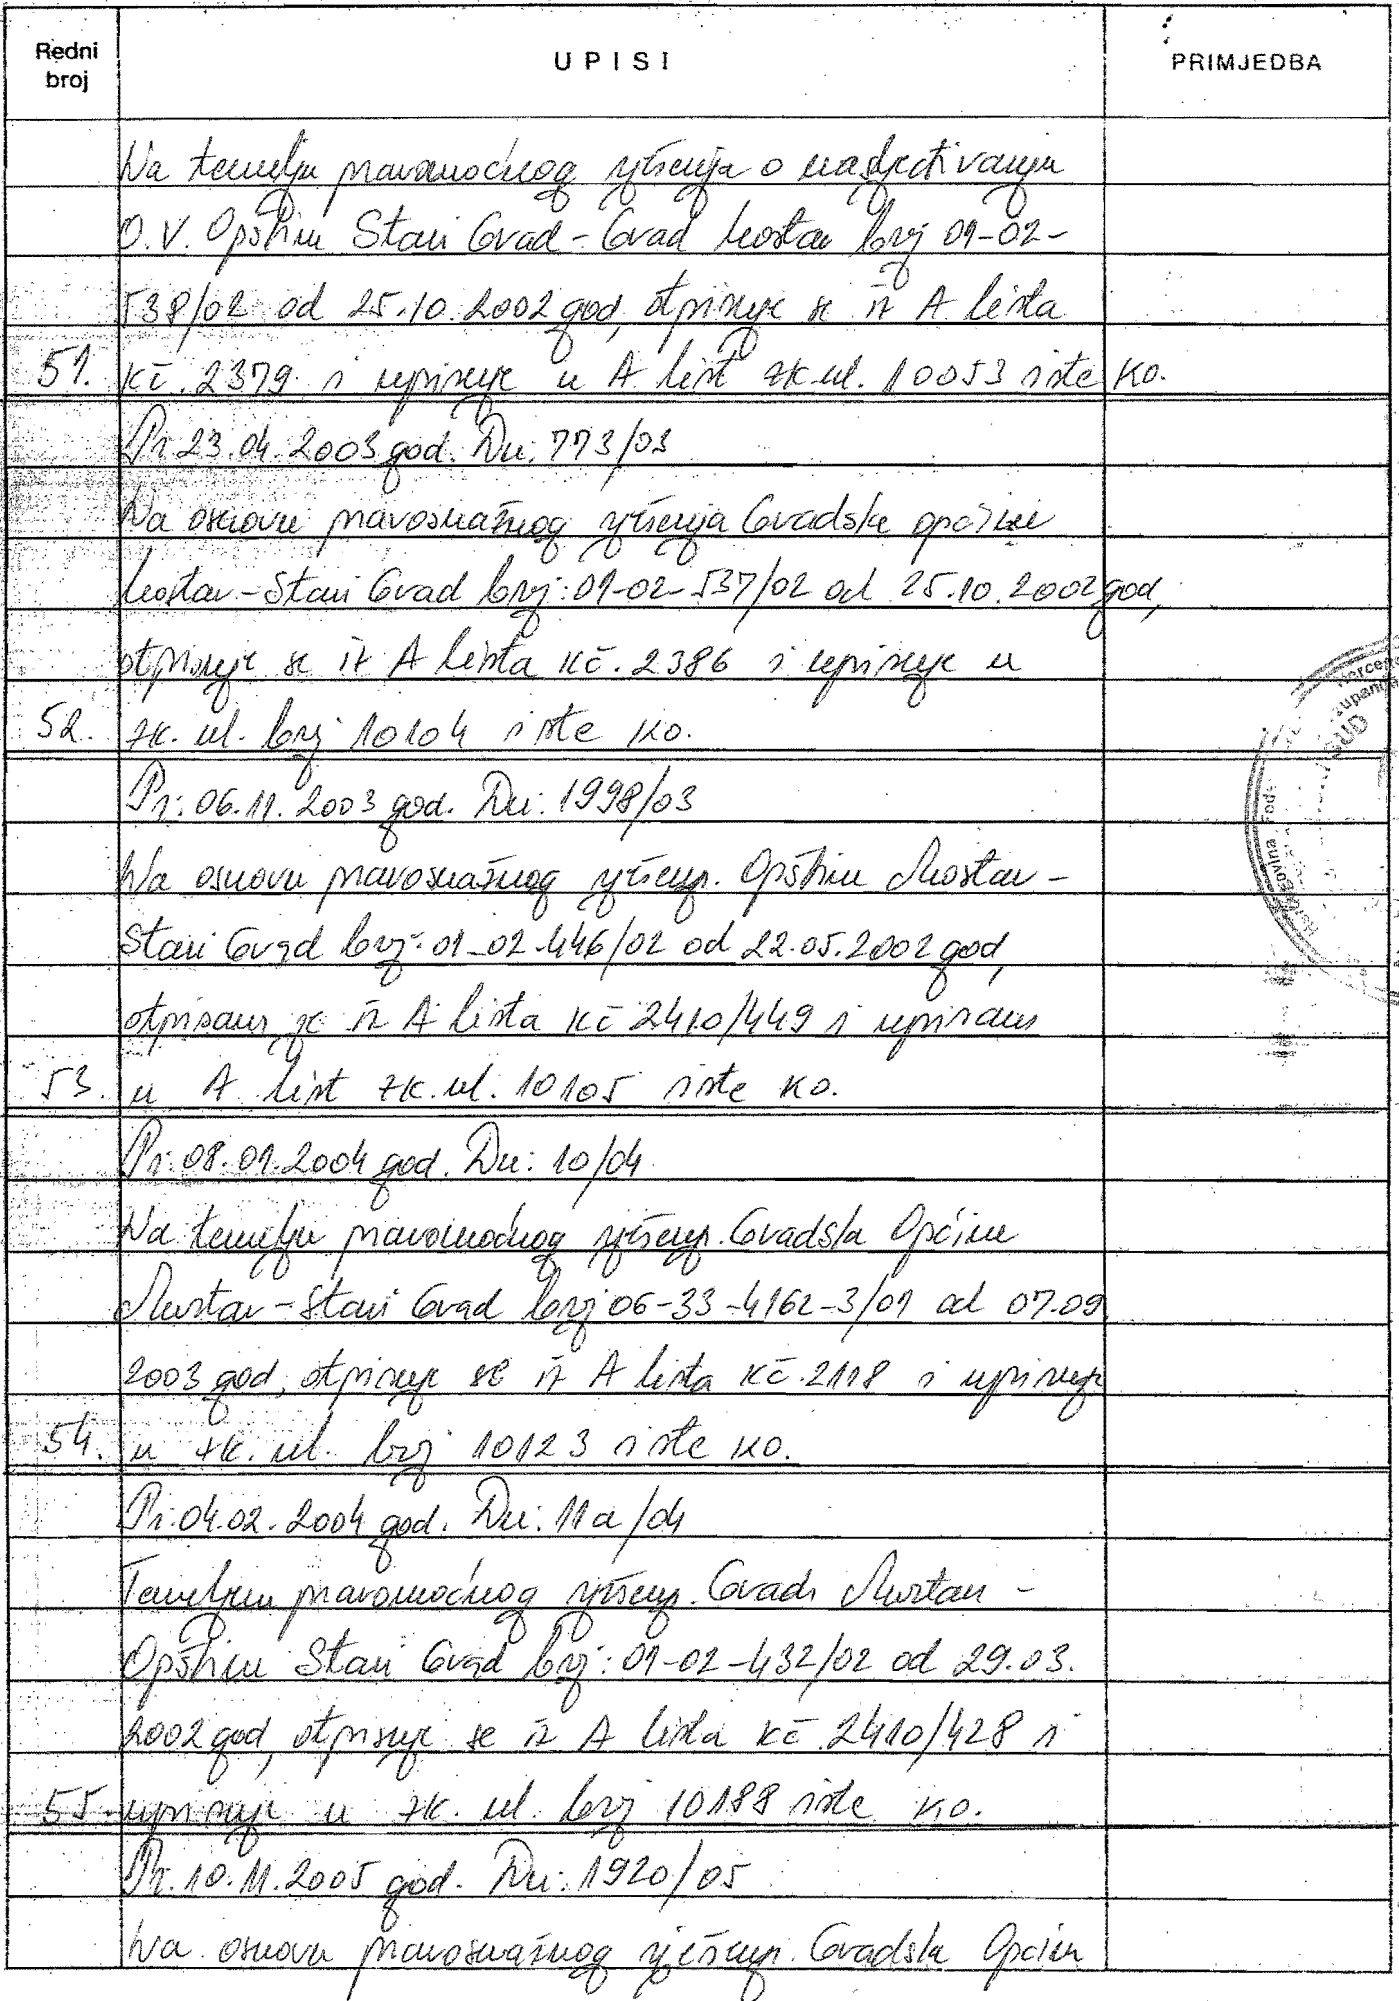 Redni
broj
UPISI
PRIMJEDBA
Na temelju pravomoćnog rješenja o nasljeđivanju
O.V. Opštine Stari Grad - Grad Mostar broj 01-02-
538/02 od 25.10.2002 god, otpisuje se iz A lista
51. kč. 2379 i upisuje u A list zk.ul. 10053 iste ko.
Pr. 23.04.2003 god. Dn. 773/03
Na osnovu pravosnažnog rješenja Gradske općine
Mostar - Stari Grad broj: 01-02-537/02 od 25.10.2002 god,
otpisuje se iz A lista kč. 2386 i upisuje u
52. zk. ul. broj 10104 iste ko.
Pr: 06.11.2003 god. Dn: 1998/03
Na osnovu pravosnažnog rješenj. Opštine Mostar -
Stari Grad broj: 01-02-446/02 od 22.05.2002 god,
otpisana je iz A lista kč 2410/449 i upisana
53. u A list zk. ul. 10105 iste ko.
Pr: 08.01.2004 god. Dn: 10/04
Na temelju pravomoćnog rješenj. Gradska Općine
Mostar - Stari Grad broj 06-33-4162-3/01 od 07.09.
2003 god, otpisuje se iz A lista kč. 2118 i upisuje
54. u zk. ul. broj 10123 iste ko.
Pr: 04.02.2004 god. Dn: 11a/04
Temeljem pravomoćnog rješenj. Grada Mostar -
Opštine Stari Grad broj: 01-02-432/02 od 29.03.
2002 god, otpisuje se iz A lista kč. 2410/428 i
55. upisuje u zk. ul. broj 10188 iste ko.
Pr. 10.11.2005 god. Dn: 1920/05
Na osnovu pravosnažnog rješenj. Gradska Općin
SUD